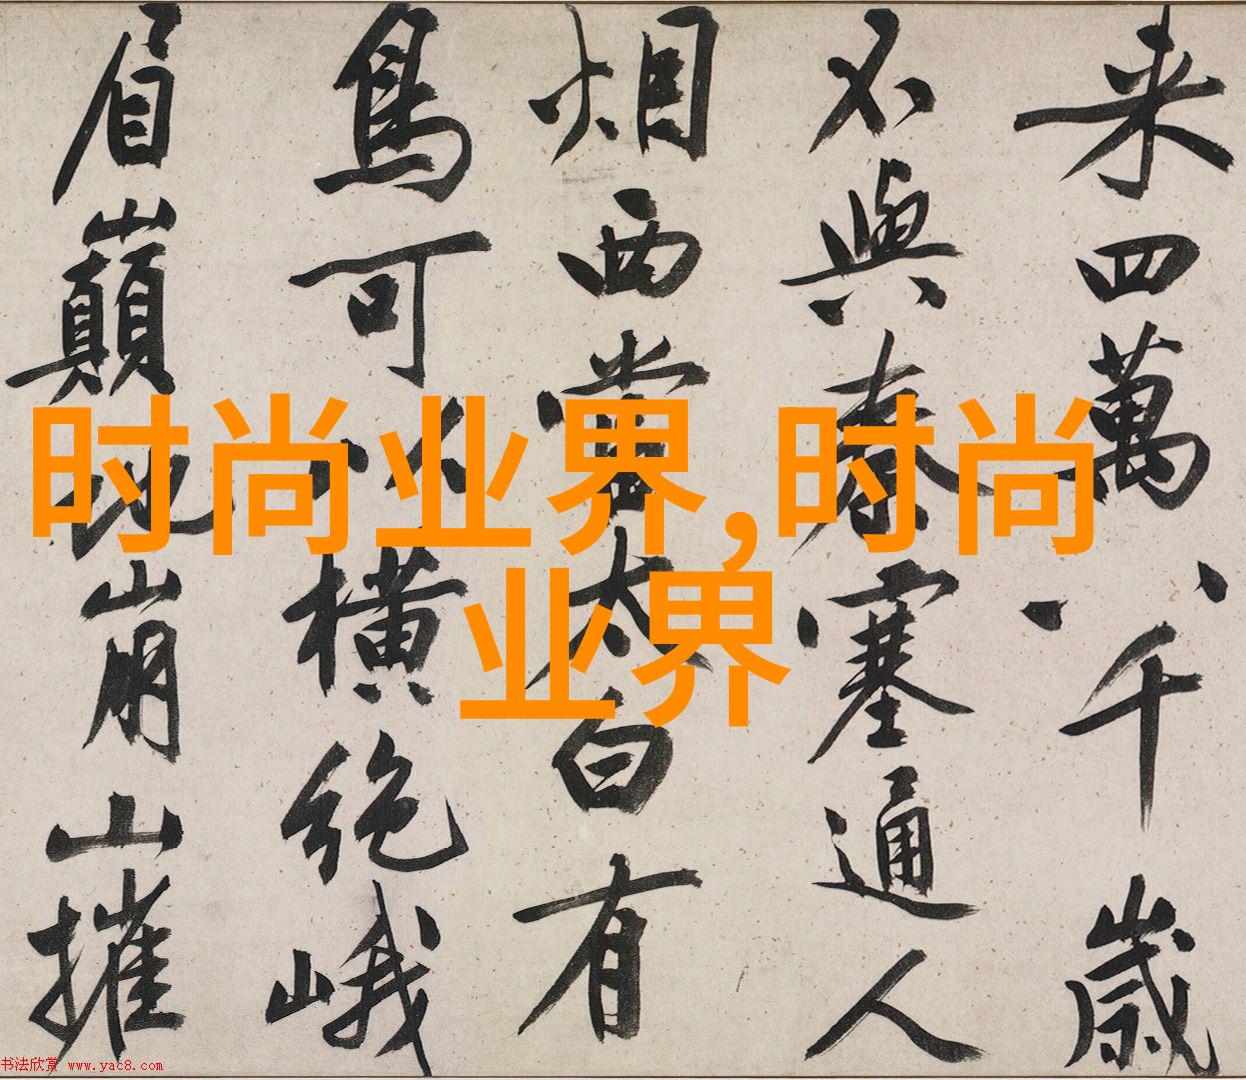 来四萬八千歲
不與秦塞通人
烟西當太白有
鳥可以橫絶峨
眉巔地崩山摧
时尚业界,时尚
业界
书法欣赏 www.yac8.com